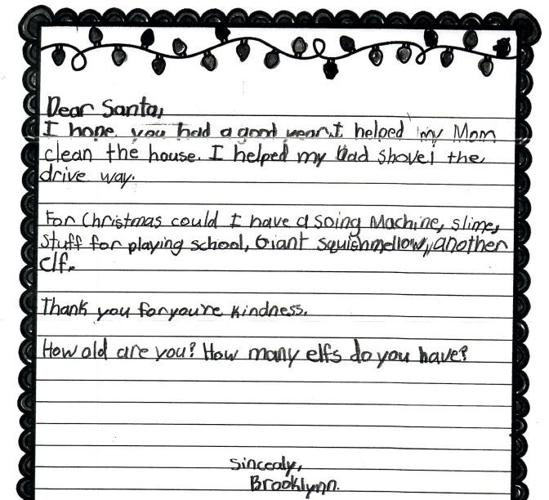 Dear Santa,
I hope you had a good year. I helped my Mom
clean the house. I helped my Dad shovel the
drive way.
For Christmas could I have a soing Machine, slime,
stuff for playing school, Giant squishmellow, another
elf.
Thank you for you're kindness.
How old are you? How many elfs do you have?
Sincealy,
Brooklynn.